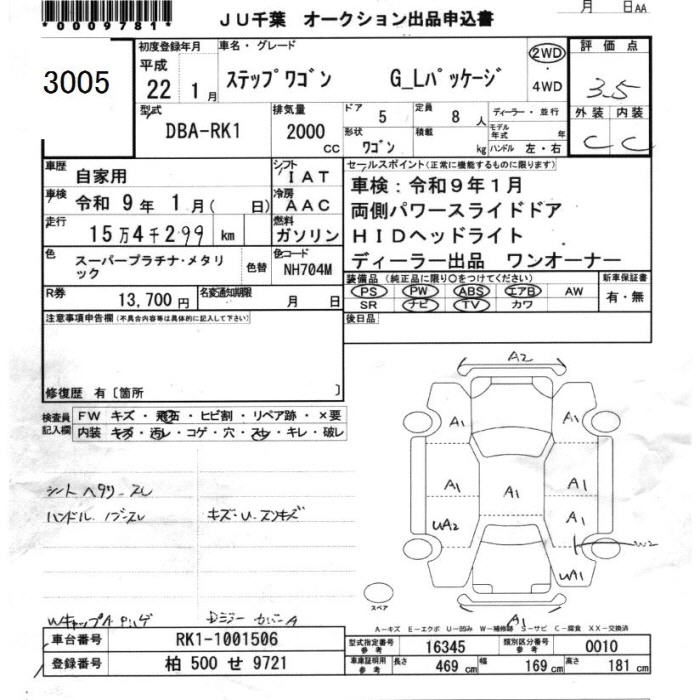 *0009781*
月 日AA
JU千葉 オークション出品申込書
3005
初度登録年月
平成
22 1月
車名・グレード
ステップワゴン G_Lパッケージ
2WD
・
4WD
評価点
3.5
外装 内装
C C
型式
DBA-RK1
排気量
2000 CC
ドア
5
定員
8 人
形状
ワゴン
積載
kg
ディーラー・並行
モデル年式 年
ハンドル 左・右
車歴
自家用
シフト
IAT
車検
令和 9年 1月( 日)
冷房
AAC
走行
15万4千299 km
燃料
ガソリン
色
スーパープラチナ・メタリック
色替
色コード
NH704M
R券
13,700円
名変通知期限
月 日
セールスポイント(正常に機能するものに限ります)
車検:令和9年1月
両側パワースライドドア
HIDヘッドライト
ディーラー出品 ワンオーナー
装備品(純正品に限り○をつけてください)
PS PW ABS エアB AW
SR ナビ TV カワ
新車保証書
有・無
後日品
注意事項申告欄(不具合内容等は具体的に記入して下さい)
修復歴 有〔箇所 〕
検査員記入欄
FW キズ・飛石・ヒビ割・リペア跡・×要
内装 キズ・汚レ・コゲ・穴・スレ・キレ・破レ
シート ヘタリ スレ
ハンドル
キズ・U
A2
A1 A1
A1 A1 A1
UA2 A1
W2
UA1
A1
スペア
A-キズ E-エクボ U-凹み W-補修跡 S-サビ C-腐食 XX-交換済
車台番号
RK1-1001506
登録番号
柏 500 せ 9721
型式指定番号
参考
16345
類別区分番号
参考
0010
車庫証明用
参考
長さ
469 cm
幅
169 cm
高さ
181 cm